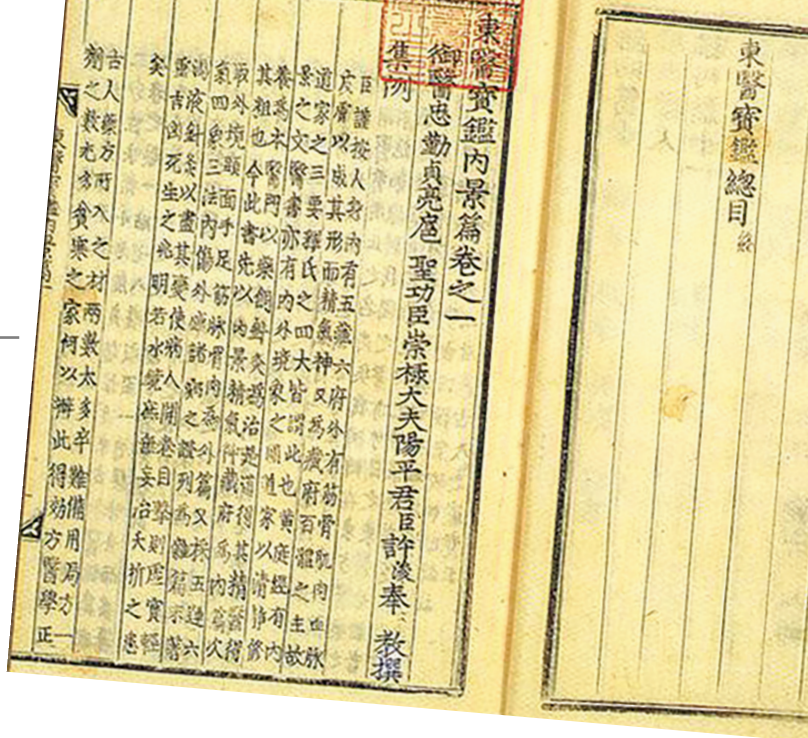 東醫寶鑑總目 終
東醫寶鑑內景篇卷之一
御醫忠勤貞亮扈 聖功臣崇祿大夫陽平君臣許浚奉 教撰
集例
臣謹按人身內有五藏六府外有筋骨肌肉血脉
皮膚以成其形而精氣神又爲藏府百體之主故
道家之三要釋氏之四大皆謂此也黃庭經有內
景之文醫書亦有內外境象之圖道家以清靜修
養爲本醫門以藥餌針灸爲治是道得其精醫得
其粗也今此書先以內景精氣神藏府爲內篇次
取外境頭面手足筋脉骨肉爲外篇又採五運六
氣四象三法內傷外感諸病之證列爲雜篇末著
湯液針灸以盡其變使病人開卷目擊則虛實輕
重吉凶死生之兆明若水鏡庶無妄治夭折之患
矣
古人藥方所入之材兩數太多卒難備用局方一
劑之數尤多貧寒之家何以辨此得効方醫學正